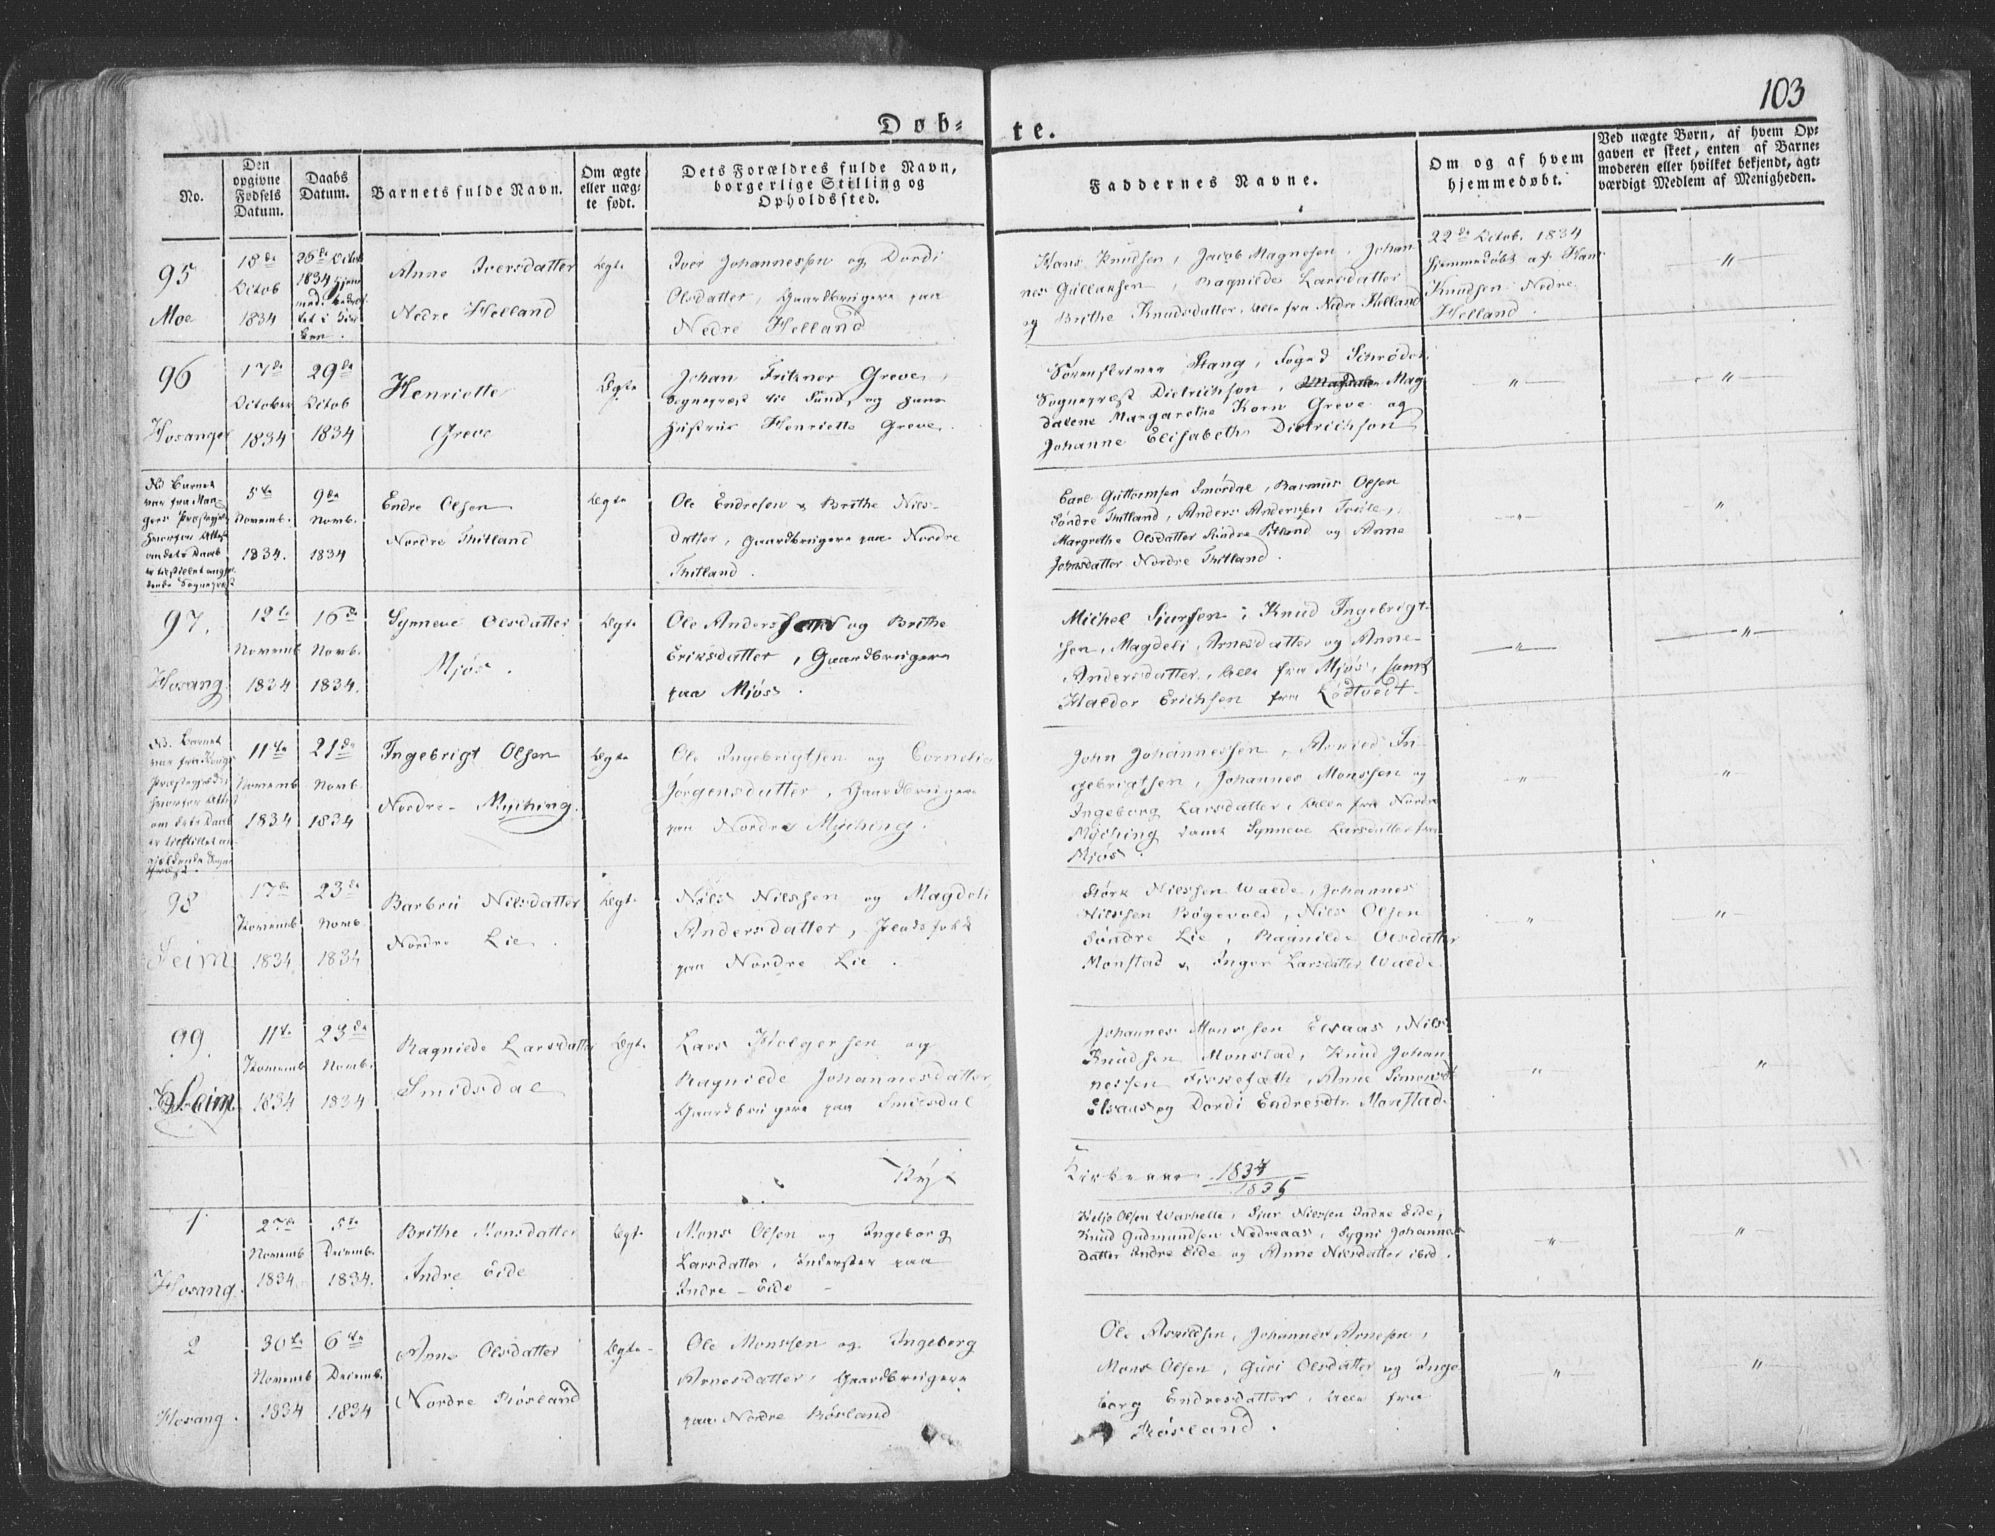 103
Døb-te.
No.
Den
opgivne
Fødsels
Datum.
Daabs
Datum.
Barnets fulde Navn.
Om ægte
eller uæg-
te født.
Dets Forældres fulde Navn,
borgerlige Stilling og
Opholdssted.
Faddernes Navne.
Om og af hvem
hjemmedøbt.
Ved uægte Børn, af hvem Op-
gaven er skeet, enten af Barne-
moderen eller hvilket bekjendt, agt-
værdigt Medlem af Menigheden.
95
Moe
18de
Octob
1834
26de Octob
1834
Anne Iversdatter
Nedre Helland
Ægte
Iver Johannessen og Dordi
Olsdatter, Gaardbrugere paa
Nedre Helland
Hans Knudsen, Jacob Magnesen, Johan-
nes Gullaksen, Ragnilde Larsdatter
og Brithe Knudsdatter, alle fra Nedre Helland
22de Octob. 1834
hjemmedøbt af Hans
Knudsen Nedre
Helland.
"
96
Hosanger
17de
October
1834
29de
Octob
1834
Henriette
Greve
Ægte
Johan Fritzner Greve,
Sognepræst til Sund, og hans
Hustrue Henriette Greve.
Stang, Foged Schrøder,
Sognepræst Dietrichson, Mag-
dalene Margarethe Korn Greve og
Johanne Elisabeth Dietrichson
"
"
NB Barnet
var fra Man-
gers Præstegjeld
hvorfor Attest
om dets Daab
er tilstillet angjel-
dende Sognepræst
5te
Novemb.
1834.
9de
Novb.
1834
Endre Olsen
Nordre Thitland
Ægte
Ole Endresen & Brithe Nils-
datter, Gaardbrugere paa Nordre
Thitland.
Carl Guttormsen Smørdal, Rasmus Olsen
Søndre Thitland, Anders Andersen
Margrethe Olsdatter Søndre Titland og Anne
Johnsdatter Nordre Thitland.
"
"
97.
Hosang.
12te
Novemb
1834
16de
Novb.
1834.
Synneve Olsdatter
Mjøs.
Ægte
Ole Anderssen og Brithe
Eriksdatter, Gaardbrugere
paa Mjøs.
Michel Siursen, Knud Ingebrigt-
sen, Magdeli Arnesdatter og Anne
Andersdatter, alle fra Mjøs, samt
Haldor Erichsen fra Lødtvedt.
"
"
NB. Barnet
var fra
Præstegjeld
hvorfor Attest
om dets Daab
er tilstillet an-
gjeldende Sogne-
præst.
11te
Novemb
1834
21de
Novb.
1834
Ingebrigt Olsen
Nordre Myching.
Ægte
Ole Ingebrigtsen og Cornelia
Jørgensdatter, Gaardbrugere
paa Nordre Myching.
John Johannessen, Arvied In-
gebrigtsen, Johannes Monssen og
Ingeborg Larsdatter, alle fra Nordre
Myching samt Synneve Larsdatter fra
Mjøs.
"
"
98
Seim
17de
Novemb.
1834
23de
Novb.
1834
Barbru Nilsdatter
Nordre Lie.
Ægte
Nils Nilssen og Magdeli
Andersdatter,
paa Nordre Lie.
Størk Nilssen Walde, Johannes
Nilssen Bøgevold, Nils Olsen
Søndre Lie, Ragnilde Olsdatter
Monstad & Inger Larsdatter Walde
"
"
99.
Seim
11te
Novemb
1834
23de
Novb.
1834
Ragnilde Larsdatter
Smidsdal
Ægte
Lars Holgersen og
Ragnilde Johannesdatter
Gaardbrugere paa Smidsdal
Johannes Monssen Elsaas, Nils
Knudsen Monstad, Knud Johan-
nessen Fiskesæth, Anne Simonsdtr
Elsaas og Dordi Endresdtr Monstad.
"
"
Nyt Kirkeaar 1834
1835
1
Hosang.
27de
Novemb
1834
5te
Decemb.
1834.
Brithe Monsdatter
Indre Eide
Ægt.
Mons Olsen og Ingeborg
Larsdatter, Inderster paa
Indre Eide
Olsen, Siur Nilssen Indre Eide,
Knud Gudmundsen Nedreaas, Sygni Johannes
datter Indre Eide og Anne Nilsdatter ibid.
"
"
2
Hosang.
30te
Novemb
1834
6te
Decemb.
1834
Anne Olsdatter
Nordre Røsland
Ægte
Ole Monssen og Ingeborg
Arnesdatter, Gaardbrugere
paa Nordre Røsland
Ole Arvidsen, Johannes Arnesen,
Mons Olsen, Guri Olsdatter og Inge-
borg Endresdatter, alle fra
Røsland.
"
"